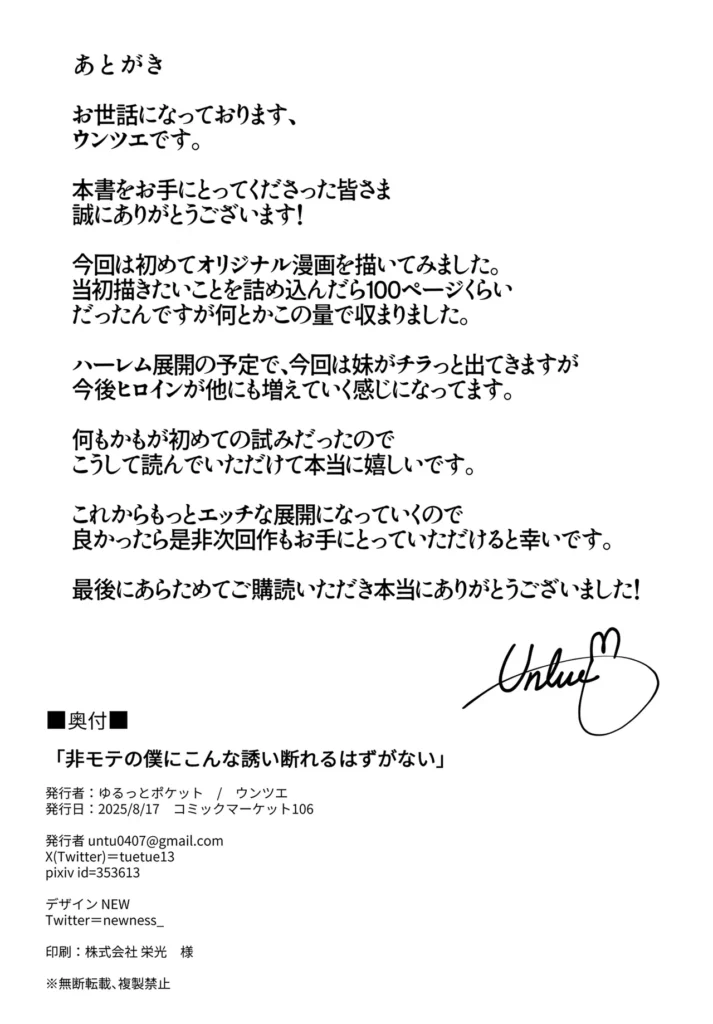 あとがき
お世話になっております、
ウンツエです。
本書をお手にとってくださった皆さま
誠にありがとうございます!
今回は初めてオリジナル漫画を描いてみました。
当初描きたいことを詰め込んだら100ページくらい
だったんですが何とかこの量で収まりました。
ハーレム展開の予定で、今回は妹がチラっと出てきますが
今後ヒロインが他にも増えていく感じになってます。
何もかもが初めての試みだったので
こうして読んでいただけて本当に嬉しいです。
これからもっとエッチな展開になっていくので
良かったら是非次回作もお手にとっていただけると幸いです。
最後にあらためてご購読いただき本当にありがとうございました!
Untue
■奥付■
「非モテの僕にこんな誘い断れるはずがない」
発行者：ゆるっとポケット　/　ウンツエ
発行日：2025/8/17　コミックマーケット106
発行者 untu0407@gmail.com
X(Twitter)＝tuetue13
pixiv id=353613
デザイン NEW
Twitter＝newness_
印刷：株式会社 栄光　様
※無断転載、複製禁止